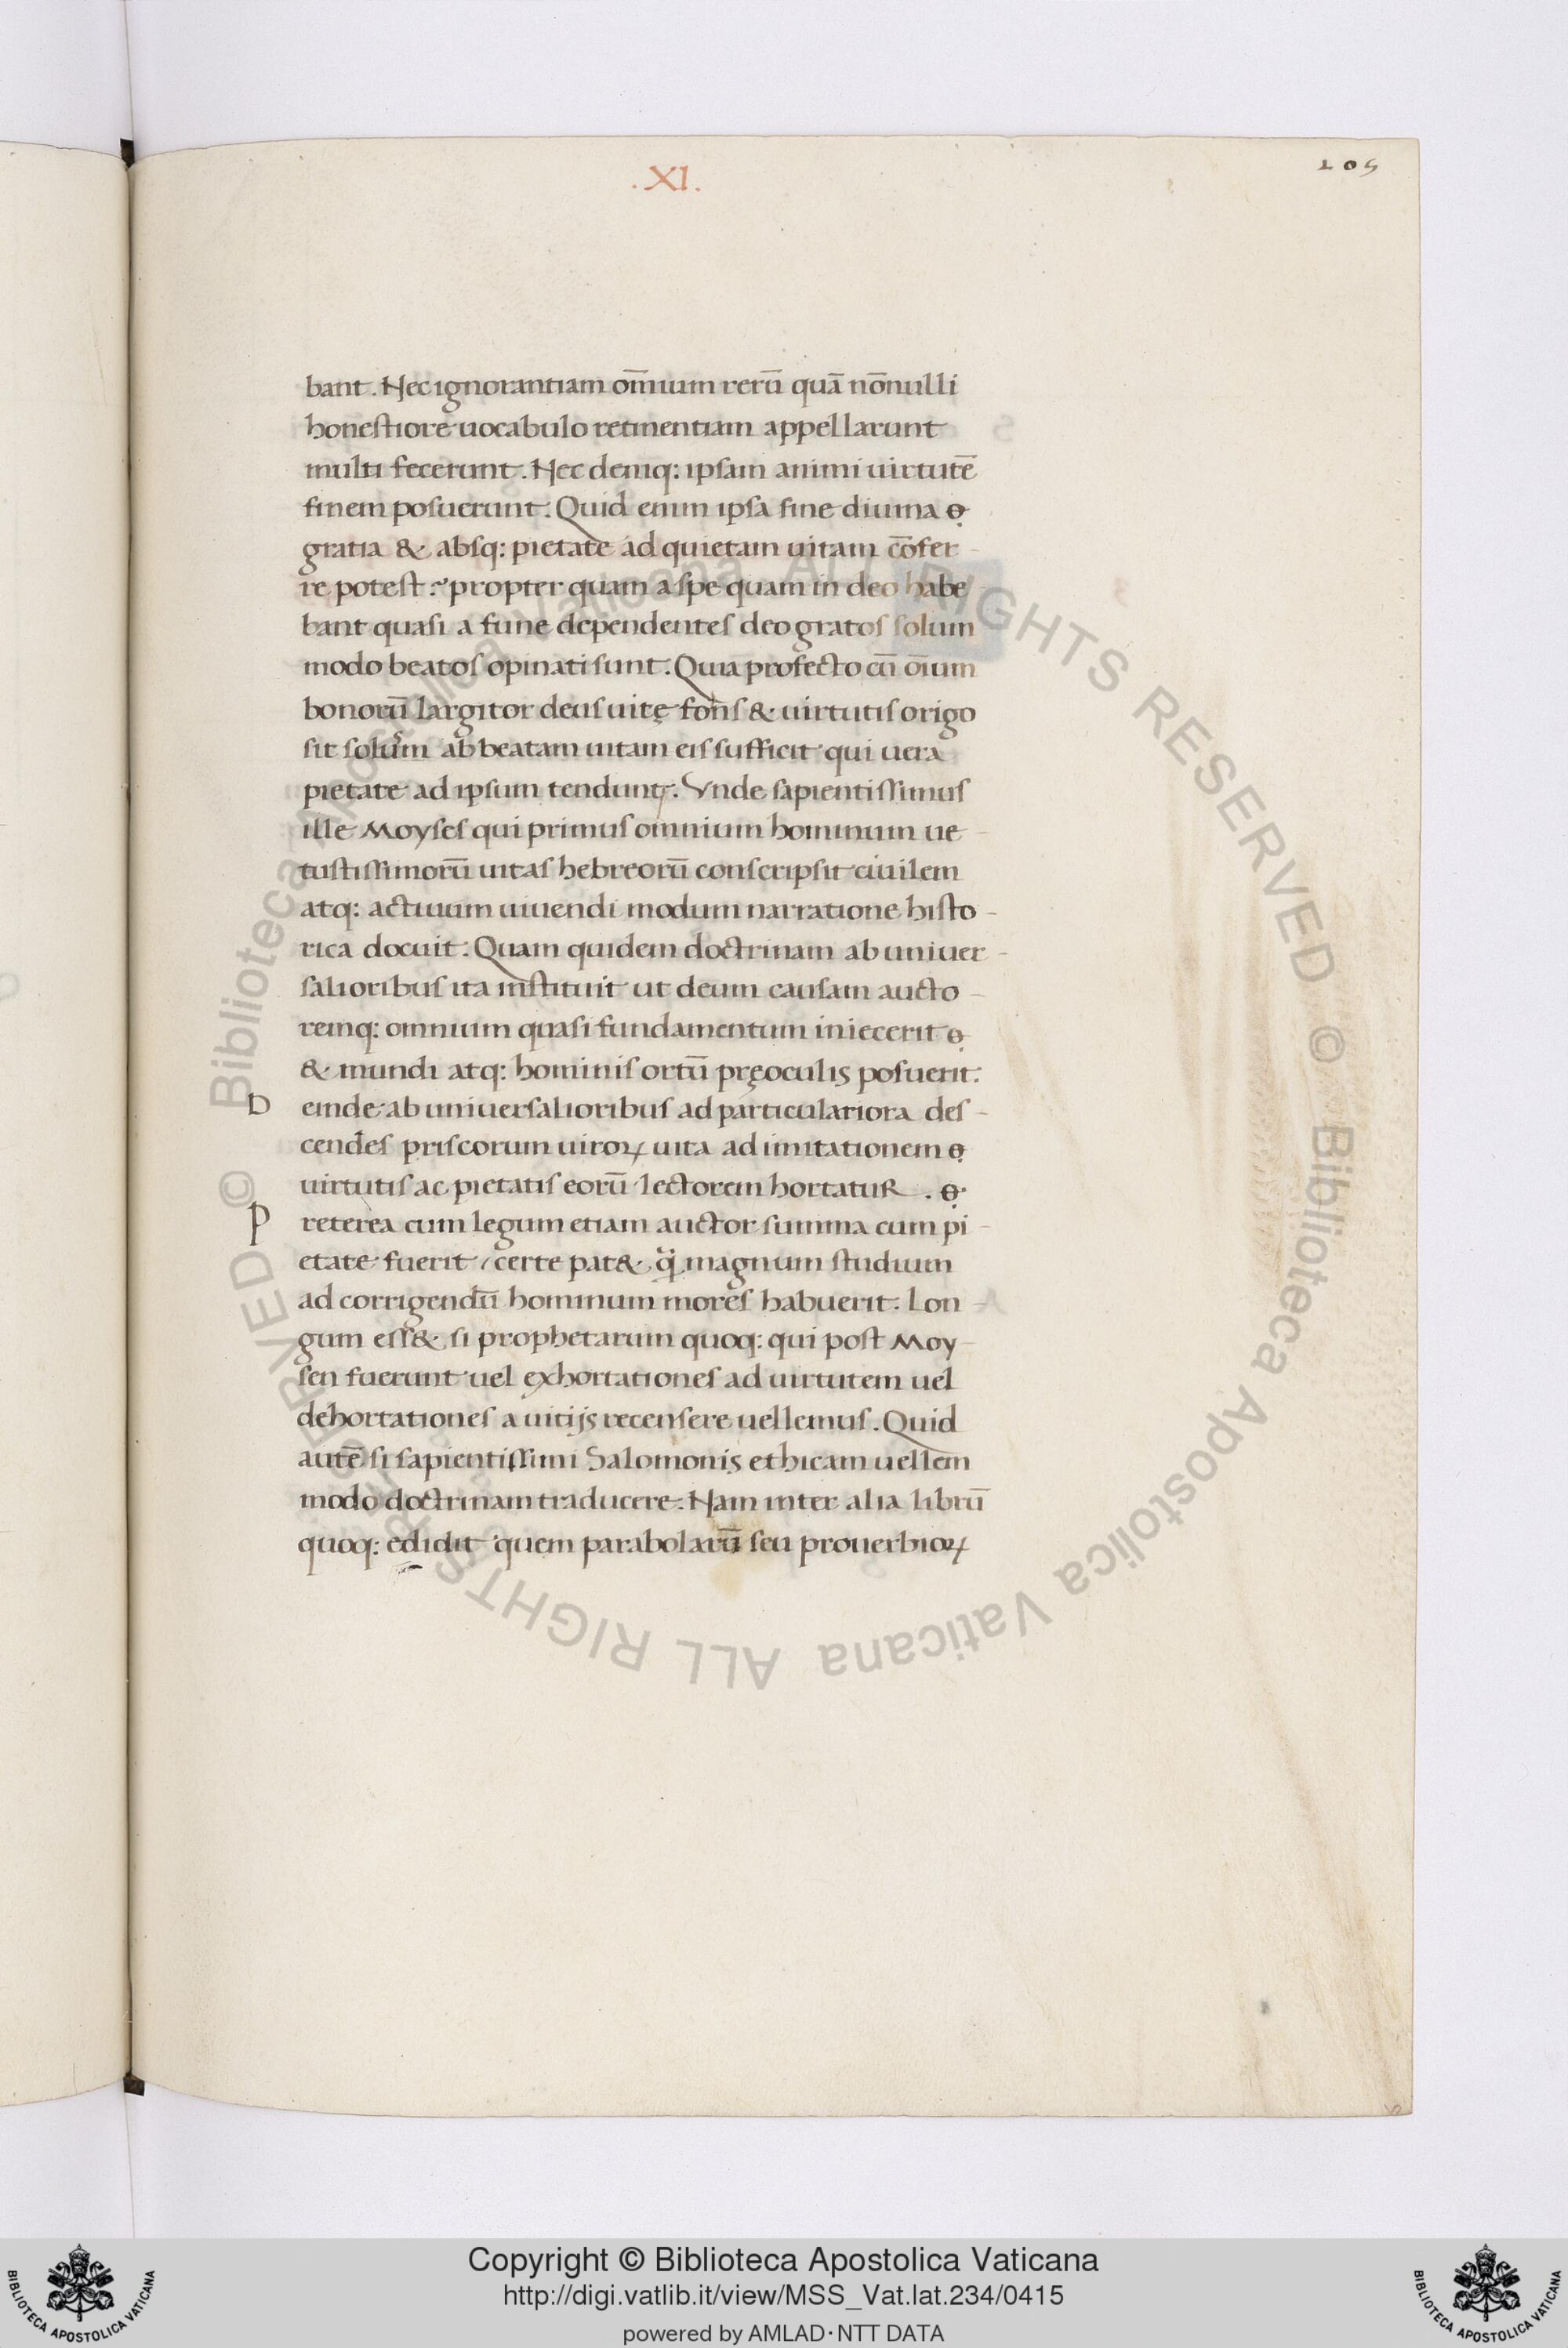 .XI.
205
bant. Nec ignorantiam om̄ium rerū quā nōnulli
honestiore uocabulo retinentiam appellarunt
multi fecerunt. Nec deniq: ipsam animi uirtutē
finem posuerunt. Quid enim ipsa sine diuina
gratia & absq: pietate ad quietam uitam cōfer-
re potest? propter quam a spe quam in deo habe
bant quasi a fune dependentes deo gratos solum
modo beatos opinati sunt. Quia profecto cū oīum
bonorū largitor deus uitę fons & uirtutis origo
sit solum ab beatam uitam eis sufficit qui uera
pietate ad ipsum tendunt. Vnde sapientissimus
ille Moyses qui primus omnium hominum ue-
tustissimorū uitas hebreorū conscripsit ciuilem
atq: actiuum uiuendi modum narratione histo-
rica docuit. Quam quidem doctrinam ab uniuer-
salioribus ita instituit ut deum causam aucto-
remq: omnium quasi fundamentum iniecerit
& mundi atq: hominis ortū pręoculis posuerit.
Deinde ab uniuersalioribus ad particulariora des-
cendēs priscorum uiroꝝ uita ad imitationem
uirtutis ac pietatis eorū lectorem hortatur.
Preterea cum legum etiam auctor summa cum pi-
etate fuerit, certe pat& magnum studium
ad corrigendū hominum mores habuerit. Lon-
gum ess& si prophetarum quoq: qui post Moy-
sen fuerunt uel exhortationes ad uirtutem uel
dehortationes a uitijs recensere uellemus. Quid
autē si sapientissimi Salomonis ethicam uellem
modo doctrinam traducere. Nam inter alia librū
quoq: edidit quem parabolarū seu prouerbioꝝ
© Biblioteca Apostolica Vaticana ALL RIGHTS RESERVED © Biblioteca Apostolica Vaticana ALL RIGHTS RESERVED
Copyright © Biblioteca Apostolica Vaticana
http://digi.vatlib.it/view/MSS_Vat.lat.234/0415
powered by AMLAD·NTT DATA
BIBLIOTECA APOSTOLICA VATICANA
BIBLIOTECA APOSTOLICA VATICANA